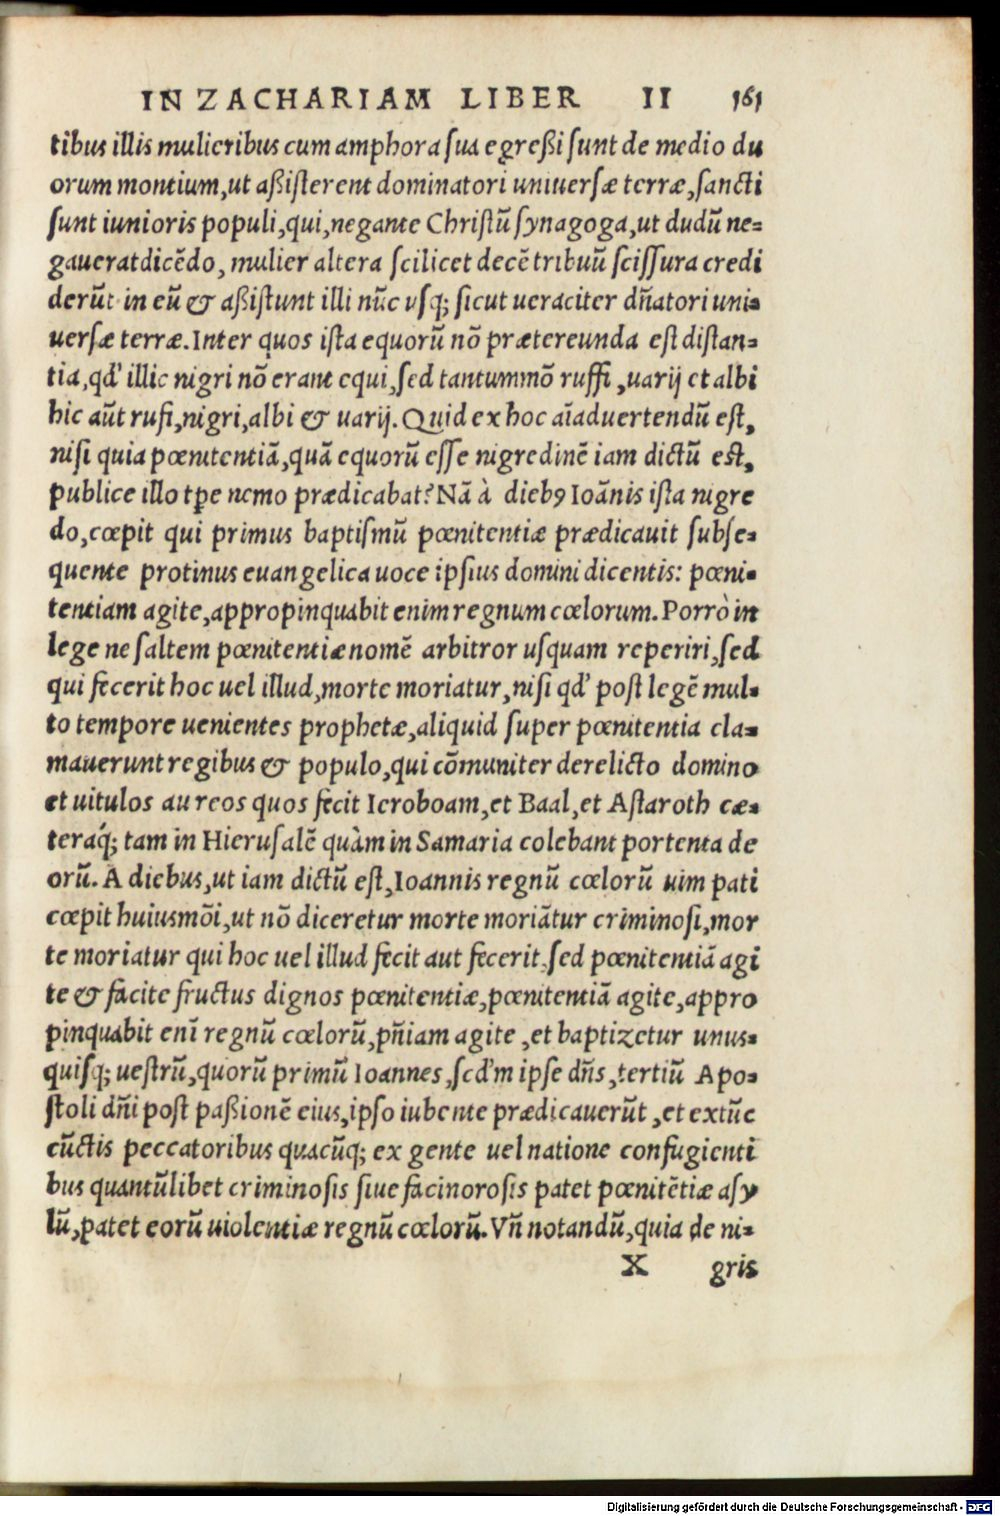 IN ZACHARIAM LIBER II 161
tibus illis mulieribus cum amphora sua egreßi sunt de medio du
orum montium, ut aßisterent dominatori uniuersæ terræ, sancti
sunt iunioris populi, qui, negante Christū synagoga, ut dudū ne=
gauerat dicēdo, mulier altera scilicet decē tribuū scissura credi
derūt in eū & aßistunt illi nūc usq; sicut ueraciter dn̄atori uni=
uersæ terræ. Inter quos ista equorū nō prætereunda est distan=
tia, qd' illic nigri nō erant equi, sed tantummō ruffi, uarij et albi
hic aūt rufi, nigri, albi & uarij. Quid ex hoc aīaduertendū est,
nisi quia pœnitentiā, quā equorū esse nigredinē iam dictū est,
publice illo tꝑe nemo prædicabat? Nā à dieb9 Ioānis ista nigre
do, cœpit qui primus baptismū pœnitentiæ prædicauit subse=
quente protinus euangelica uoce ipsius domini dicentis: pœni=
tentiam agite, appropinquabit enim regnum cœlorum. Porrò in
lege ne saltem pœnitentiæ nomē arbitror usquam reperiri, sed
qui fecerit hoc uel illud, morte moriatur, nisi qd' post legē mul=
to tempore uenientes prophetæ, aliquid super pœnitentia cla=
mauerunt regibus & populo, qui cōmuniter derelicto domino
et uitulos aureos quos fecit Ieroboam, et Baal, et Astaroth cæ=
teraq́; tam in Hierusalē quàm in Samaria colebant portenta de
orū. A diebus, ut iam dictū est, Ioannis regnū cœlorū uim pati
cœpit huiusmōi, ut nō diceretur morte moriātur criminosi, mor
te moriatur qui hoc uel illud fecit aut fecerit, sed pœnitentiā agi
te & facite fructus dignos pœnitentiæ, pœnitentiā agite, appro
pinquabit enī regnū cœlorū, pn̄iam agite, et baptizetur unus=
quisq; uestrū, quorū primū Ioannes, scd'm ipse dn̄s, tertiū Apo=
stoli dn̄i post paßionē eius, ipso iubente prædicauerūt, et extūc
cūctis peccatoribus quacūq; ex gente uel natione confugienti
bus quantūlibet criminosis siue facinorosis patet pœnitētiæ asy
lū, patet eorū uiolentiæ regnū cœlorū. Vn̄ notandū, quia de ni=
X gris
Digitalisierung gefördert durch die Deutsche Forschungsgemeinschaft - DFG